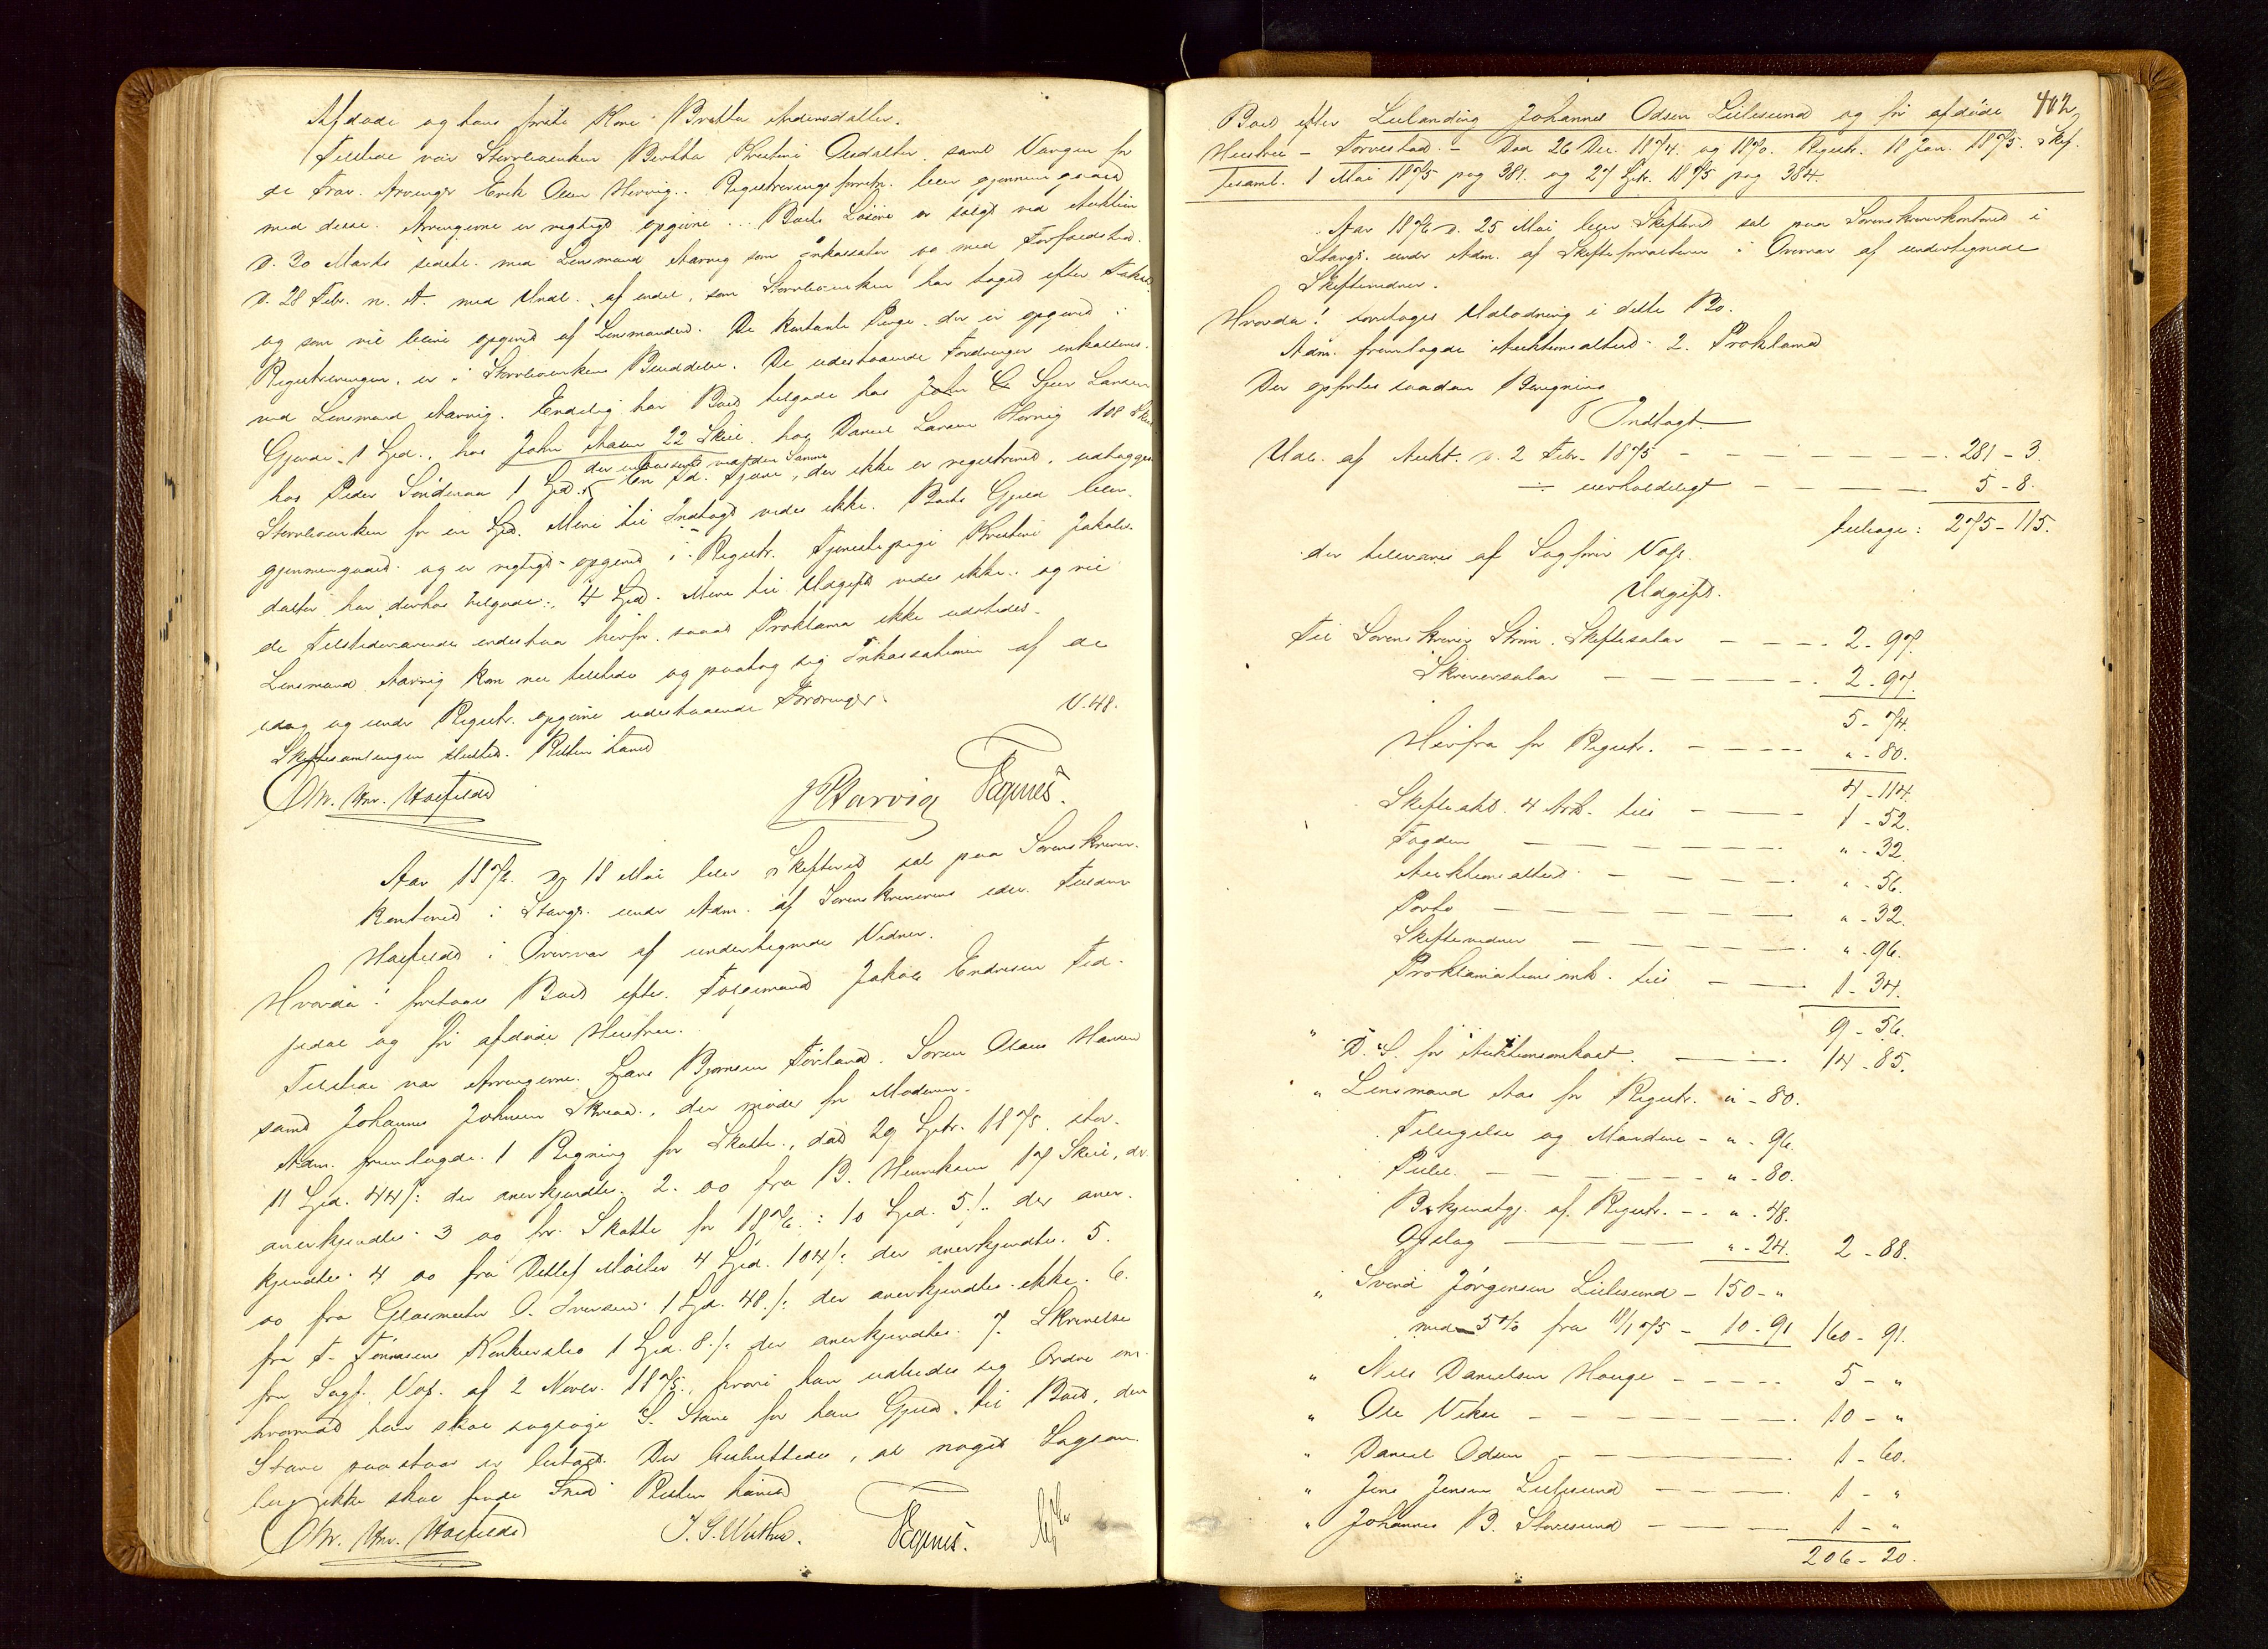 Afdøde og hans første Kone Brithe Andersdatter.
Tilstede var Sterboenken Berthe Kristine Olsdatter samt Værgen for
de Frav. Arvinger Erik Olsen Hervig. Registreringsforretn. blev gjennemgaaed
med disse. Arvingerne er rigtigt opgivne. Boets Løsøre er solgt ved Auktion
d. 30 Marts sidstl. med Lensmand Aarvig som Inkassator og med Forfaldstid
d. 28 Febr. n. A. med Undt. af endel, som Sterboenken har taget efter Taxt
og som vil blive opgivet af Lensmanden. De kontante Penge, der er opgivet i
Registreringen, er i Sterboenkens Besiddelse. De udestaaende Fordringer inkasseres
ved Lensmand Aarvig. Endelig har Boet tilgode hos John Sjur Larsen
Gjerde 1 Spd., hos John Aasen 22 Skill. hos Daniel Larsen Hervig 108 Skill
hos Peder Sønderaa 1 Spd. der inkasseres ved den Samme
En Td. Tjære, der ikke er registreret, udlægges
Sterboenken for en Spd. Mere til Indtægt vides ikke. Boets Gjeld blev
gjennemgaaed og er rigtigt opgivet i Registr. Tjenestepige Kristine Jakobs-
datter har derhos tilgode 4 Spd. Mere til Udgift vides ikke og vil
de Tilstedeværende indestaa herfor saaat Proklama ikke udstedes.
Lensmand Aarvig kom nu tilstede og paatog sig Inkassationen af de
idag og under Registr. opgivne udestaaende Fordringer.
V. 48.
Skiftesamlingen sluttet. Retten hævet
Chr. Hnr. Høifeldt J P Aarvig Tegnes.
Aar 1876 d. 18 Mai blev Skifteret sat paa Sorenskriver-
kontoret i Stangl. under Adm. af Sorenskriverens edsv. Fuldm
Høifeldt i Overvær af undertegnede Vidner.
Hvorda! foretoges Boet efter Folgemand Jakob Endresen Fed-
jedal og før afdøde Hustru.
Tilstede var Arvingerne Lars Bjørnsen Førland, Søren Olaus Hansen
samt Johannes Johnsen Skreaa, der møder for Moderen.
Adm. fremlagde 1 Regning for Skatte, dat 29 Septr. 1875, stor
11 Spd. 44 /: der anerkjendtes. 2. do fra B. Henriksen 17 Skill, der
anerkjendtes. 3 do for Skatte for 1876: 10 Spd. 5 /: der aner-
kjendtes. 4 do fra Detlef Møller 4 Spd. 104 /: der anerkjendtes. 5.
do fra Glasmester O. Iversen 1 Spd. 48 /: der anerkjendtes ikke. 6.
fra T. Tønnesens Konkursbo 1 Spd. 8 /: der anerkjendtes. 7. Skrivelse
fra Sagf. Vofs. af 2 Novbr. 1875, hvori han udbeder sig Ordre om
hvorvidt han skal sagsøge S. Stane for hans Gjeld til Boet, der
Stane paastaar er betalt. Der besluttedes, at noget Sagsan-
læg ikke skal finde Sted. Retten hævet
Chr. Hnr. Høifeldt J. G. Wathne. Tegnes.
402
Boet efter Leilænding Johannes Odsen Lillesund og før afdøde
Hustru – Torvestad. – Død 26 Dec. 1874 og 1870. Registr. 18 Jan. 1875. Skf.
tesaml. 1 Mai 1875 pag 381. og 27 Sptr. 1875 pag 384.
Aar 1876 d. 25 Mai blev Skifteret sat paa Sorenskriverkontoret i
Stangl. under Adm. af Skifteforvalteren i Overvær af undertegnede
Skiftevidner.
Hvorda! foretoges Udlodning i dette Bo.
Adm. fremlagde Auktionsattest. 2. Proklama
Der opførtes saadan Beregning
Indtægt
Udb. af Aukt. d. 2 Febr. 1875 – – – – 281 – 3.
÷ uerholdeligt – – – – 5 – 8.
beltage: 275 – 115.
der tilsvares af Sagfører Vofs.
Udgift.
Til Sorenskriver Strøm. Skiftesalær – – – 2 – 97.
Skriversalær – – – – 2 – 97.
5 – 74.
Herfra for Registr. – – – " – 80.
4 – 114.
Skifteakt. 4 Ark. till – – – 1 – 52.
Fogden – – – – " – 32.
Auktionsattest – – – – " – 56.
Porto – – – – " – 32.
Skiftevidner – – – – " – 96.
Proklamationsomk. till – – 1 – 34.
9 – 56.
" D. S. for Auktionsomkost. – – 14 – 85.
" Lensmand Aas for Registr. " – 80.
Tilsigelse og Mændene – " – 96.
Pulle. – – – – " – 80.
Bekjendtgj. af Registr. – – " – 48.
Opslag – – – " – 24. 2 – 88.
" Svend Jørgensen Lillesund – 150 – "
med 5 % fra 18/1 75 – 10 – 91 160 – 91.
" Nils Danielsen Hauge – – – – 5 – "
" Ole Vikse – – – – – 10 – "
" Daniel Odsen – – – – 1 – 60.
" Jens Jensen Lillesund – – – 1 – "
" Johannes B. Storesund – – – 1 – "
206 – 20.